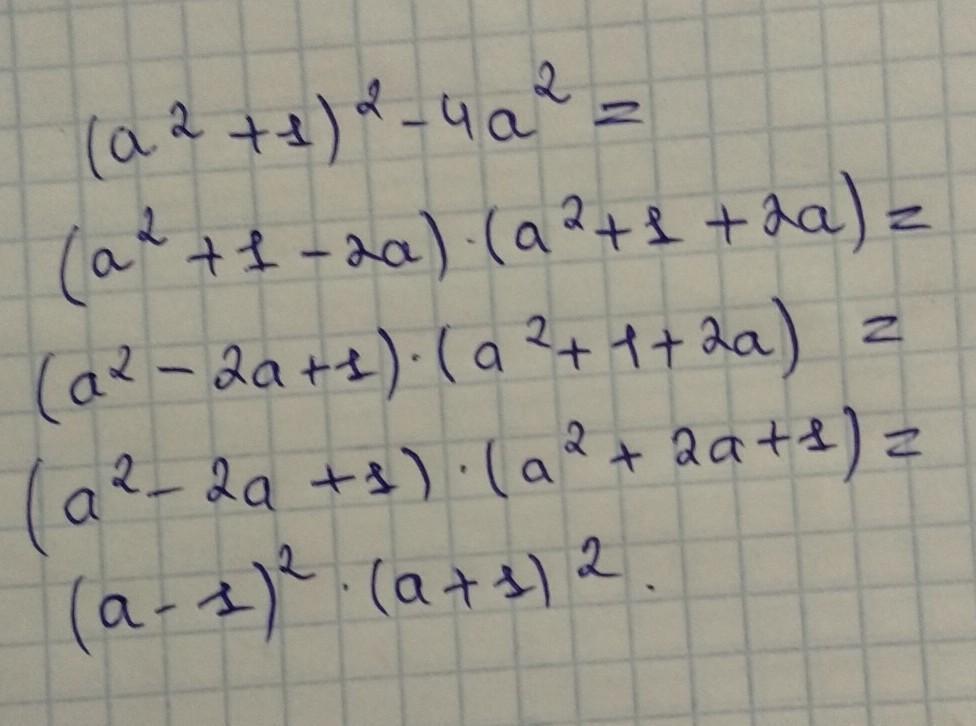 (a² + 1)² - 4a² =
(a² + 1 - 2a) · (a² + 1 + 2a) =
(a² - 2a + 1) · (a² + 1 + 2a) =
(a² - 2a + 1) · (a² + 2a + 1) =
(a - 1)² · (a + 1)².